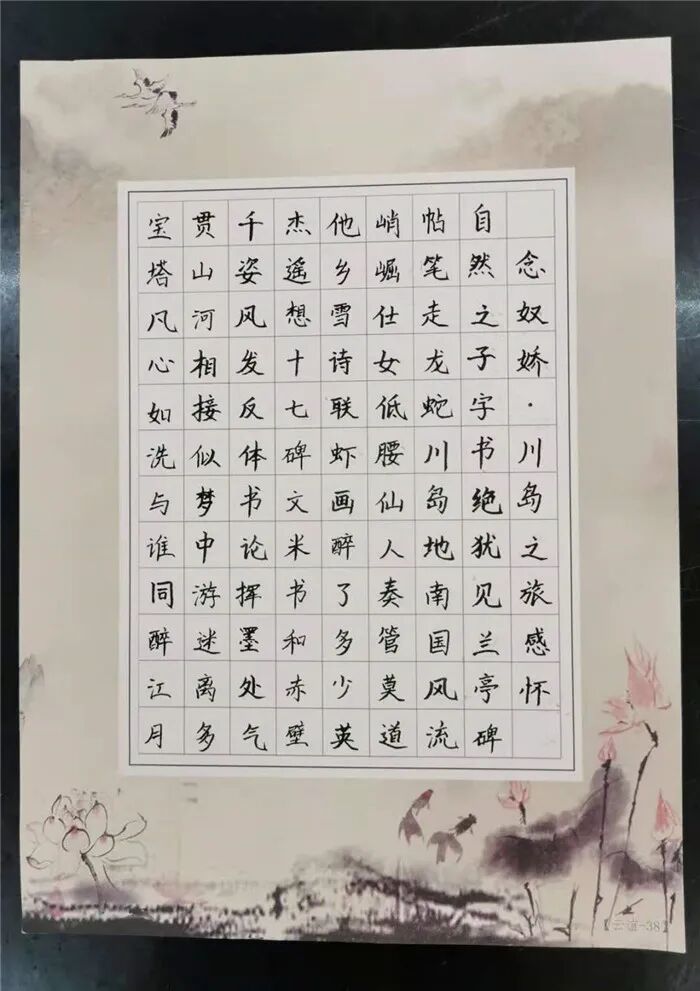 念奴娇·川岛之旅感怀
自然之子字书绝犹见兰亭碑
帖笔走龙蛇川岛地南国风流
峭崛仕女低腰仙人奏管莫道
他乡雪诗联虾画醉了多少英
杰遥想十七碑文米书和赤壁
千姿风发反体书论挥墨处气
贯山河相接似梦中游迷离多
宝塔凡心如洗与谁同醉江月